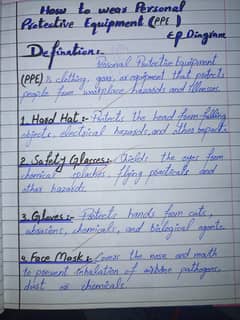 How to wear Personal
Protective Equipment (PPE)
& Diagram
Defination:-
Personal Protective Equipment
(PPE) is clothing, gear, or equipment that protects
people from workplace hazards and illnesses.
1. Hard Hat:- Protects the head from falling
objects, electrical hazards, and other impacts
2. Safety Glasses:- Shields the eyes from
chemical splashes, flying particals and
other hazards.
3. Gloves:- Protects hands from cuts,
abrasions, chemicals, and biological agents.
4. Face Mask:- Covers the nose and mouth
to prevent inhalation of airborne pathogens,
dust or chemicals.